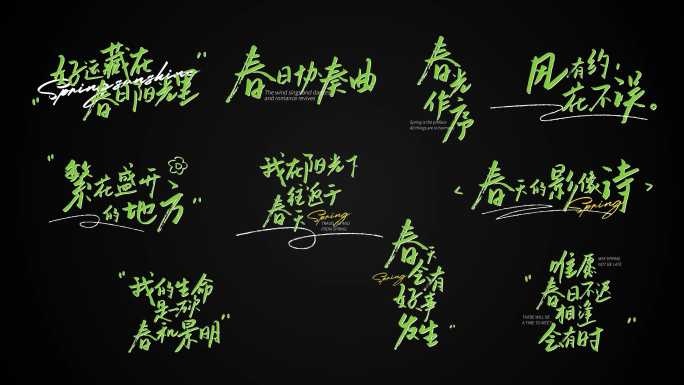 好运藏在
Spring sunshine
春日阳光里
春日协奏曲
The wind sings and dances
and romance revives
春光
作序
Spring is the preface
All things are in harmony
风有约，
花不误。
"繁花盛开、
的地方"
我在阳光下
往返于
春天
Spring
FROM SPRING
<春天的影像诗>
Spring
春天
会有
Spring
好事
发生"
"我的生命
是一场
春和景明"
唯愿
MAY SPRING
NOT BE LATE
"春日不迟
相逢
THERE WILL BE
A TIME TO MEET
会有时"